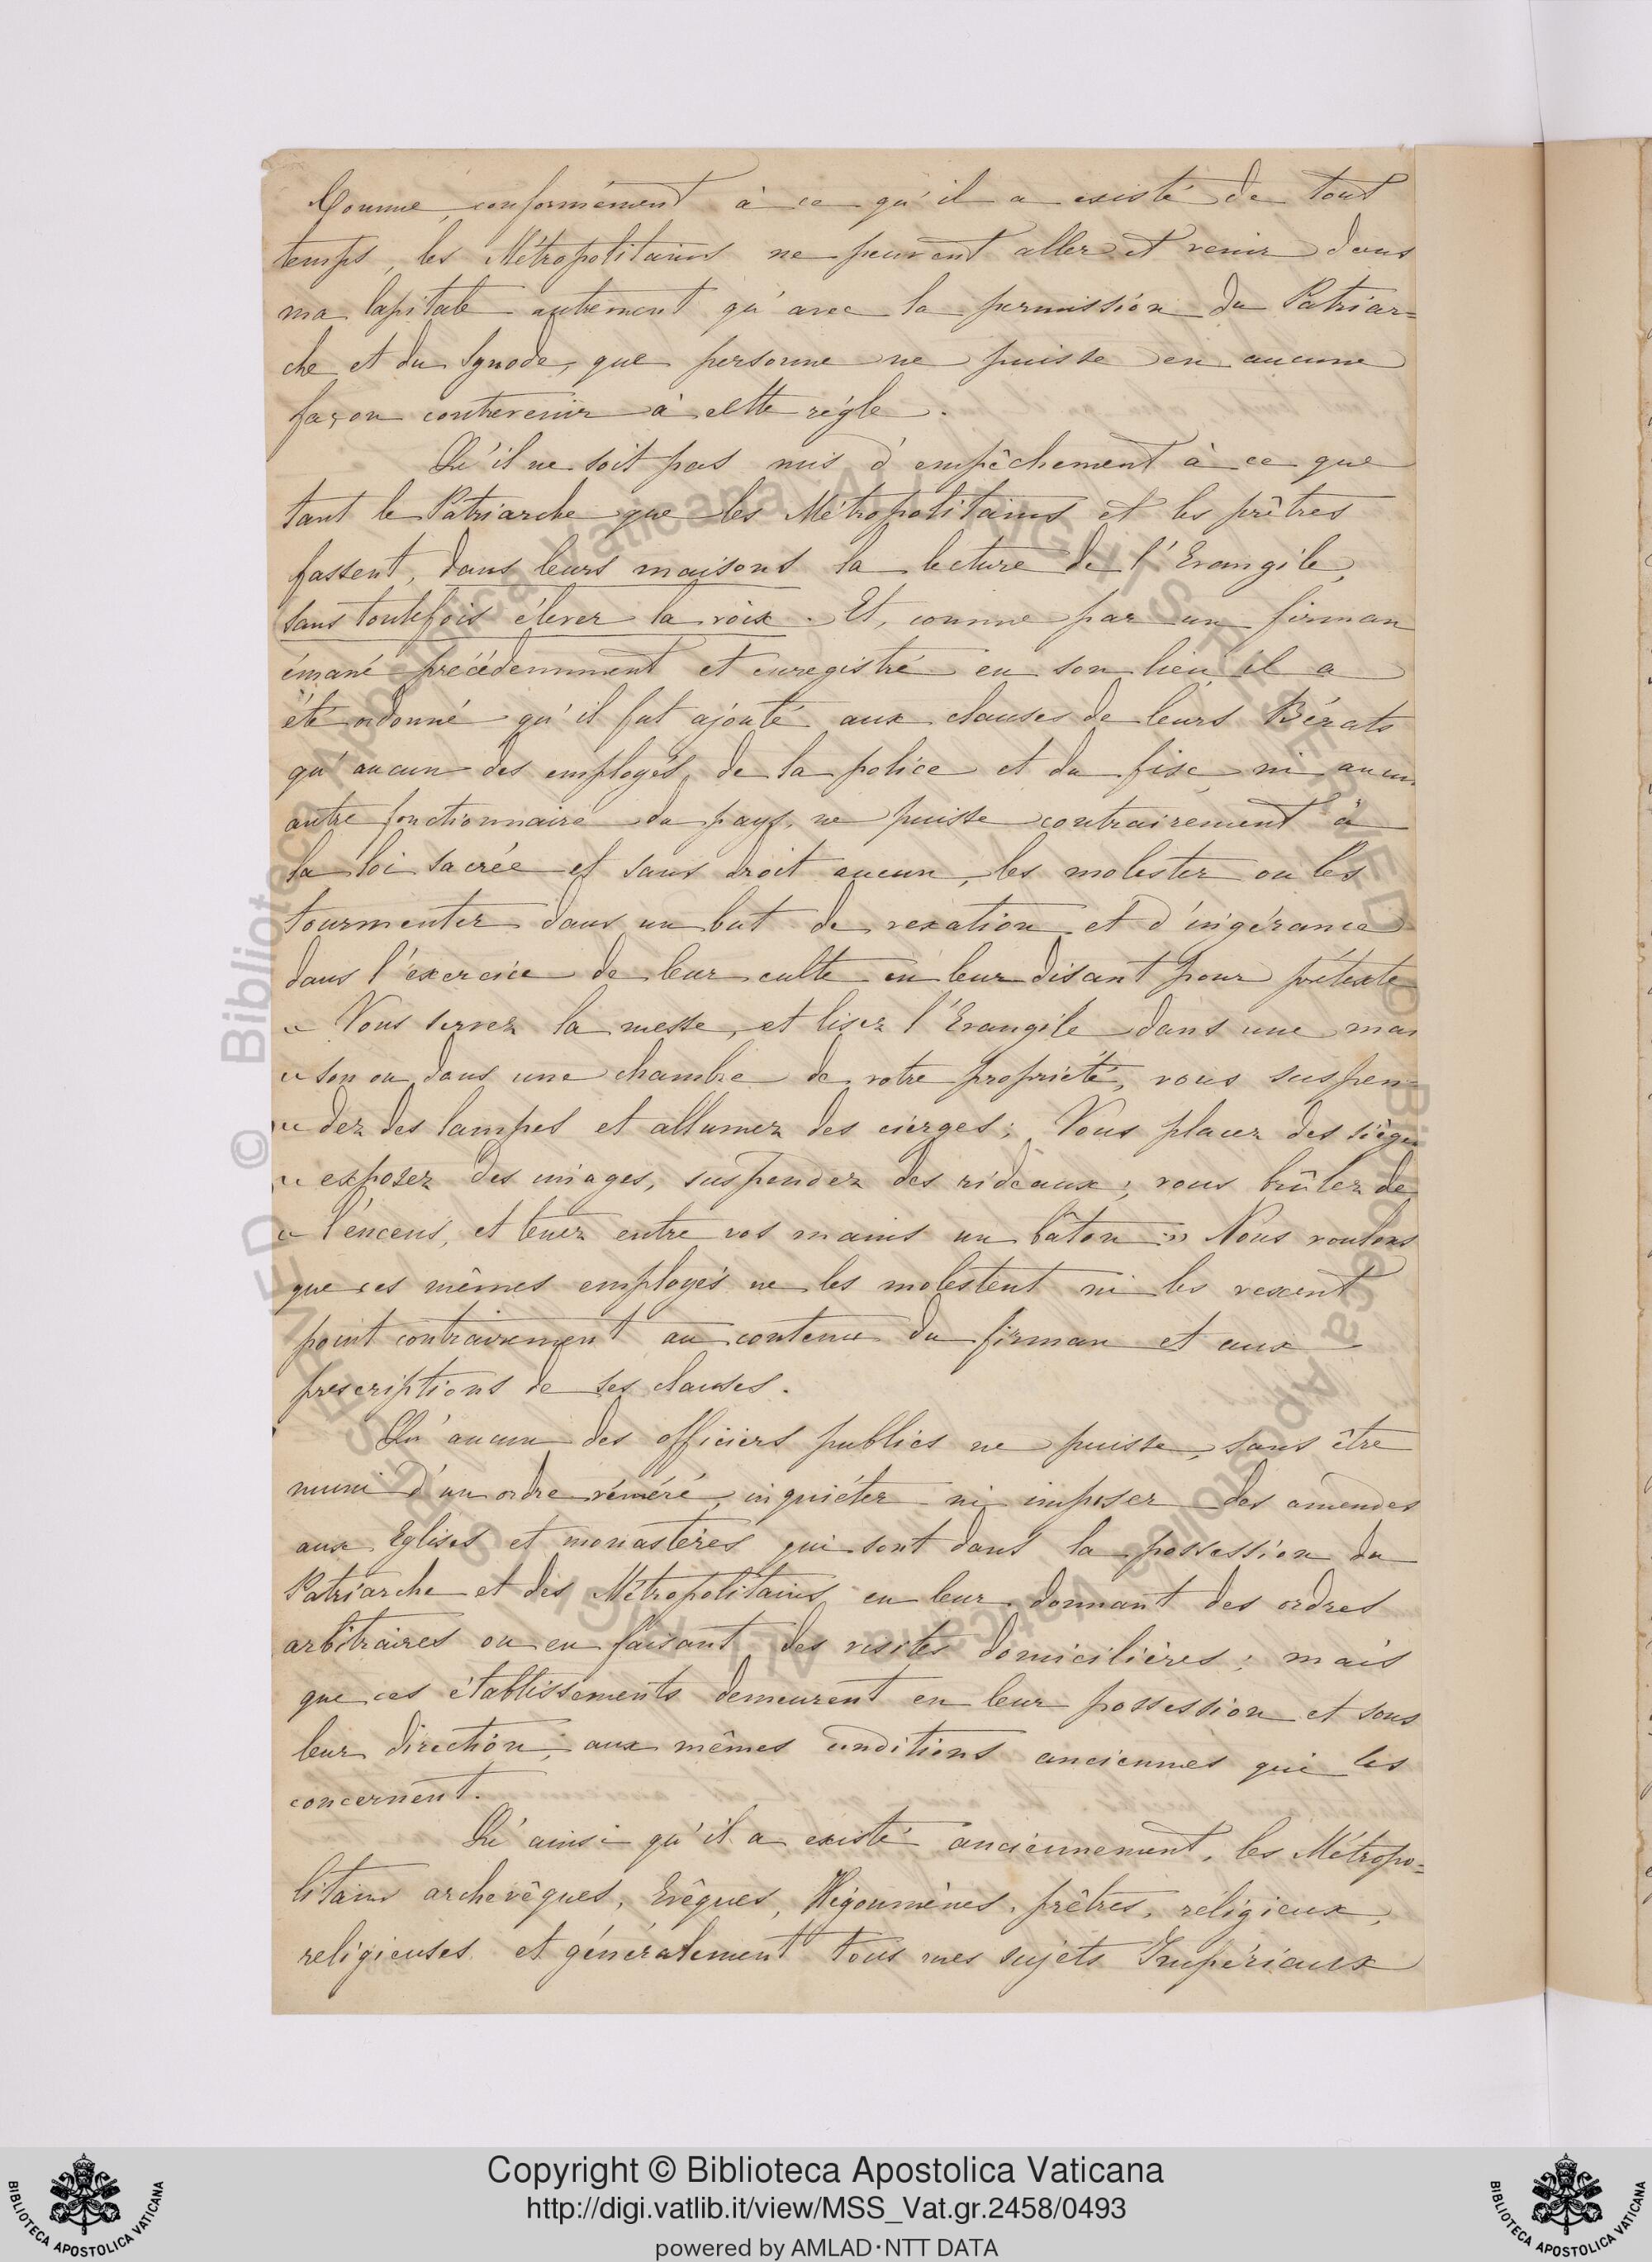 Comme, conformément à ce qu'il a existé de tout
temps, les Métropolitains ne peuvent aller et venir dans
ma Capitale autrement qu'avec la permission du Patriar=
che et du Synode, que personne ne puisse en aucune
façon contrevenir à cette règle.
Qu'il ne soit pas mis d'empêchement à ce que
tant le Patriarche que les Métropolitains et les prêtres
fassent, dans leurs maisons la lecture de l'Evangile,
sans toutefois élever la voix. Et, comme par un firman
émané précédemment et enregistré en son lieu, il a
été ordonné qu'il fut ajouté aux clauses de leurs Bérats
qu'aucun des employés, de la police et du fisc, ni aucun
autre fonctionnaire du pays, ne puisse contrairement à
la loi sacrée et sans droit aucun, les molester ou les
tourmenter dans un but de vexation et d'ingérance
dans l'exercice de leur culte en leur disant pour prétexte
« Vous servez la messe, et lisez l'Evangile dans une mai
« son ou dans une chambre de votre propriété, vous suspen=
« dez des lampes et allumez des cierges; Vous placez des sièges
« exposez des images, suspendez des rideaux; vous brûlez de
« l'encens, et tenez entre vos mains un bâton ;» Nous voulons
que ces mêmes employés ne les molestent ni les vexent
point contrairement au contenu du firman et aux
prescriptions de ses clauses.
Qu'aucun des officiers publics ne puisse, sans être
muni d'un ordre vénéré, inquiéter ni imposer des amendes
aux Eglises et monastères qui sont dans la possession du
Patriarche et des Métropolitains en leur donnant des ordres
arbitraires ou en faisant des visites domicilières; mais
que ces établissements demeurent en leur possession et sous
leur direction, aux mêmes conditions anciennes qui les
concernent.
Qu'ainsi qu'il a existé anciennement, les Métropo=
litains archevêques, Evêques, Higoumènes, prêtres, religieux,
religieuses et généralement tous mes sujets Impériaux
Copyright © Biblioteca Apostolica Vaticana
http://digi.vatlib.it/view/MSS_Vat.gr.2458/0493
powered by AMLAD·NTT DATA
BIBLIOTECA APOSTOLICA VATICANA
BIBLIOTECA APOSTOLICA VATICANA
© Biblioteca Apostolica Vaticana ALL RIGHTS RESERVED
© Biblioteca Apostolica Vaticana ALL RIGHTS RESERVED